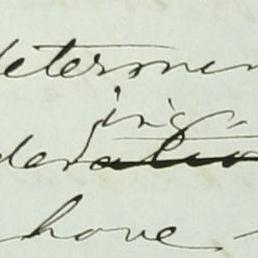 determin
ing.
deration
have